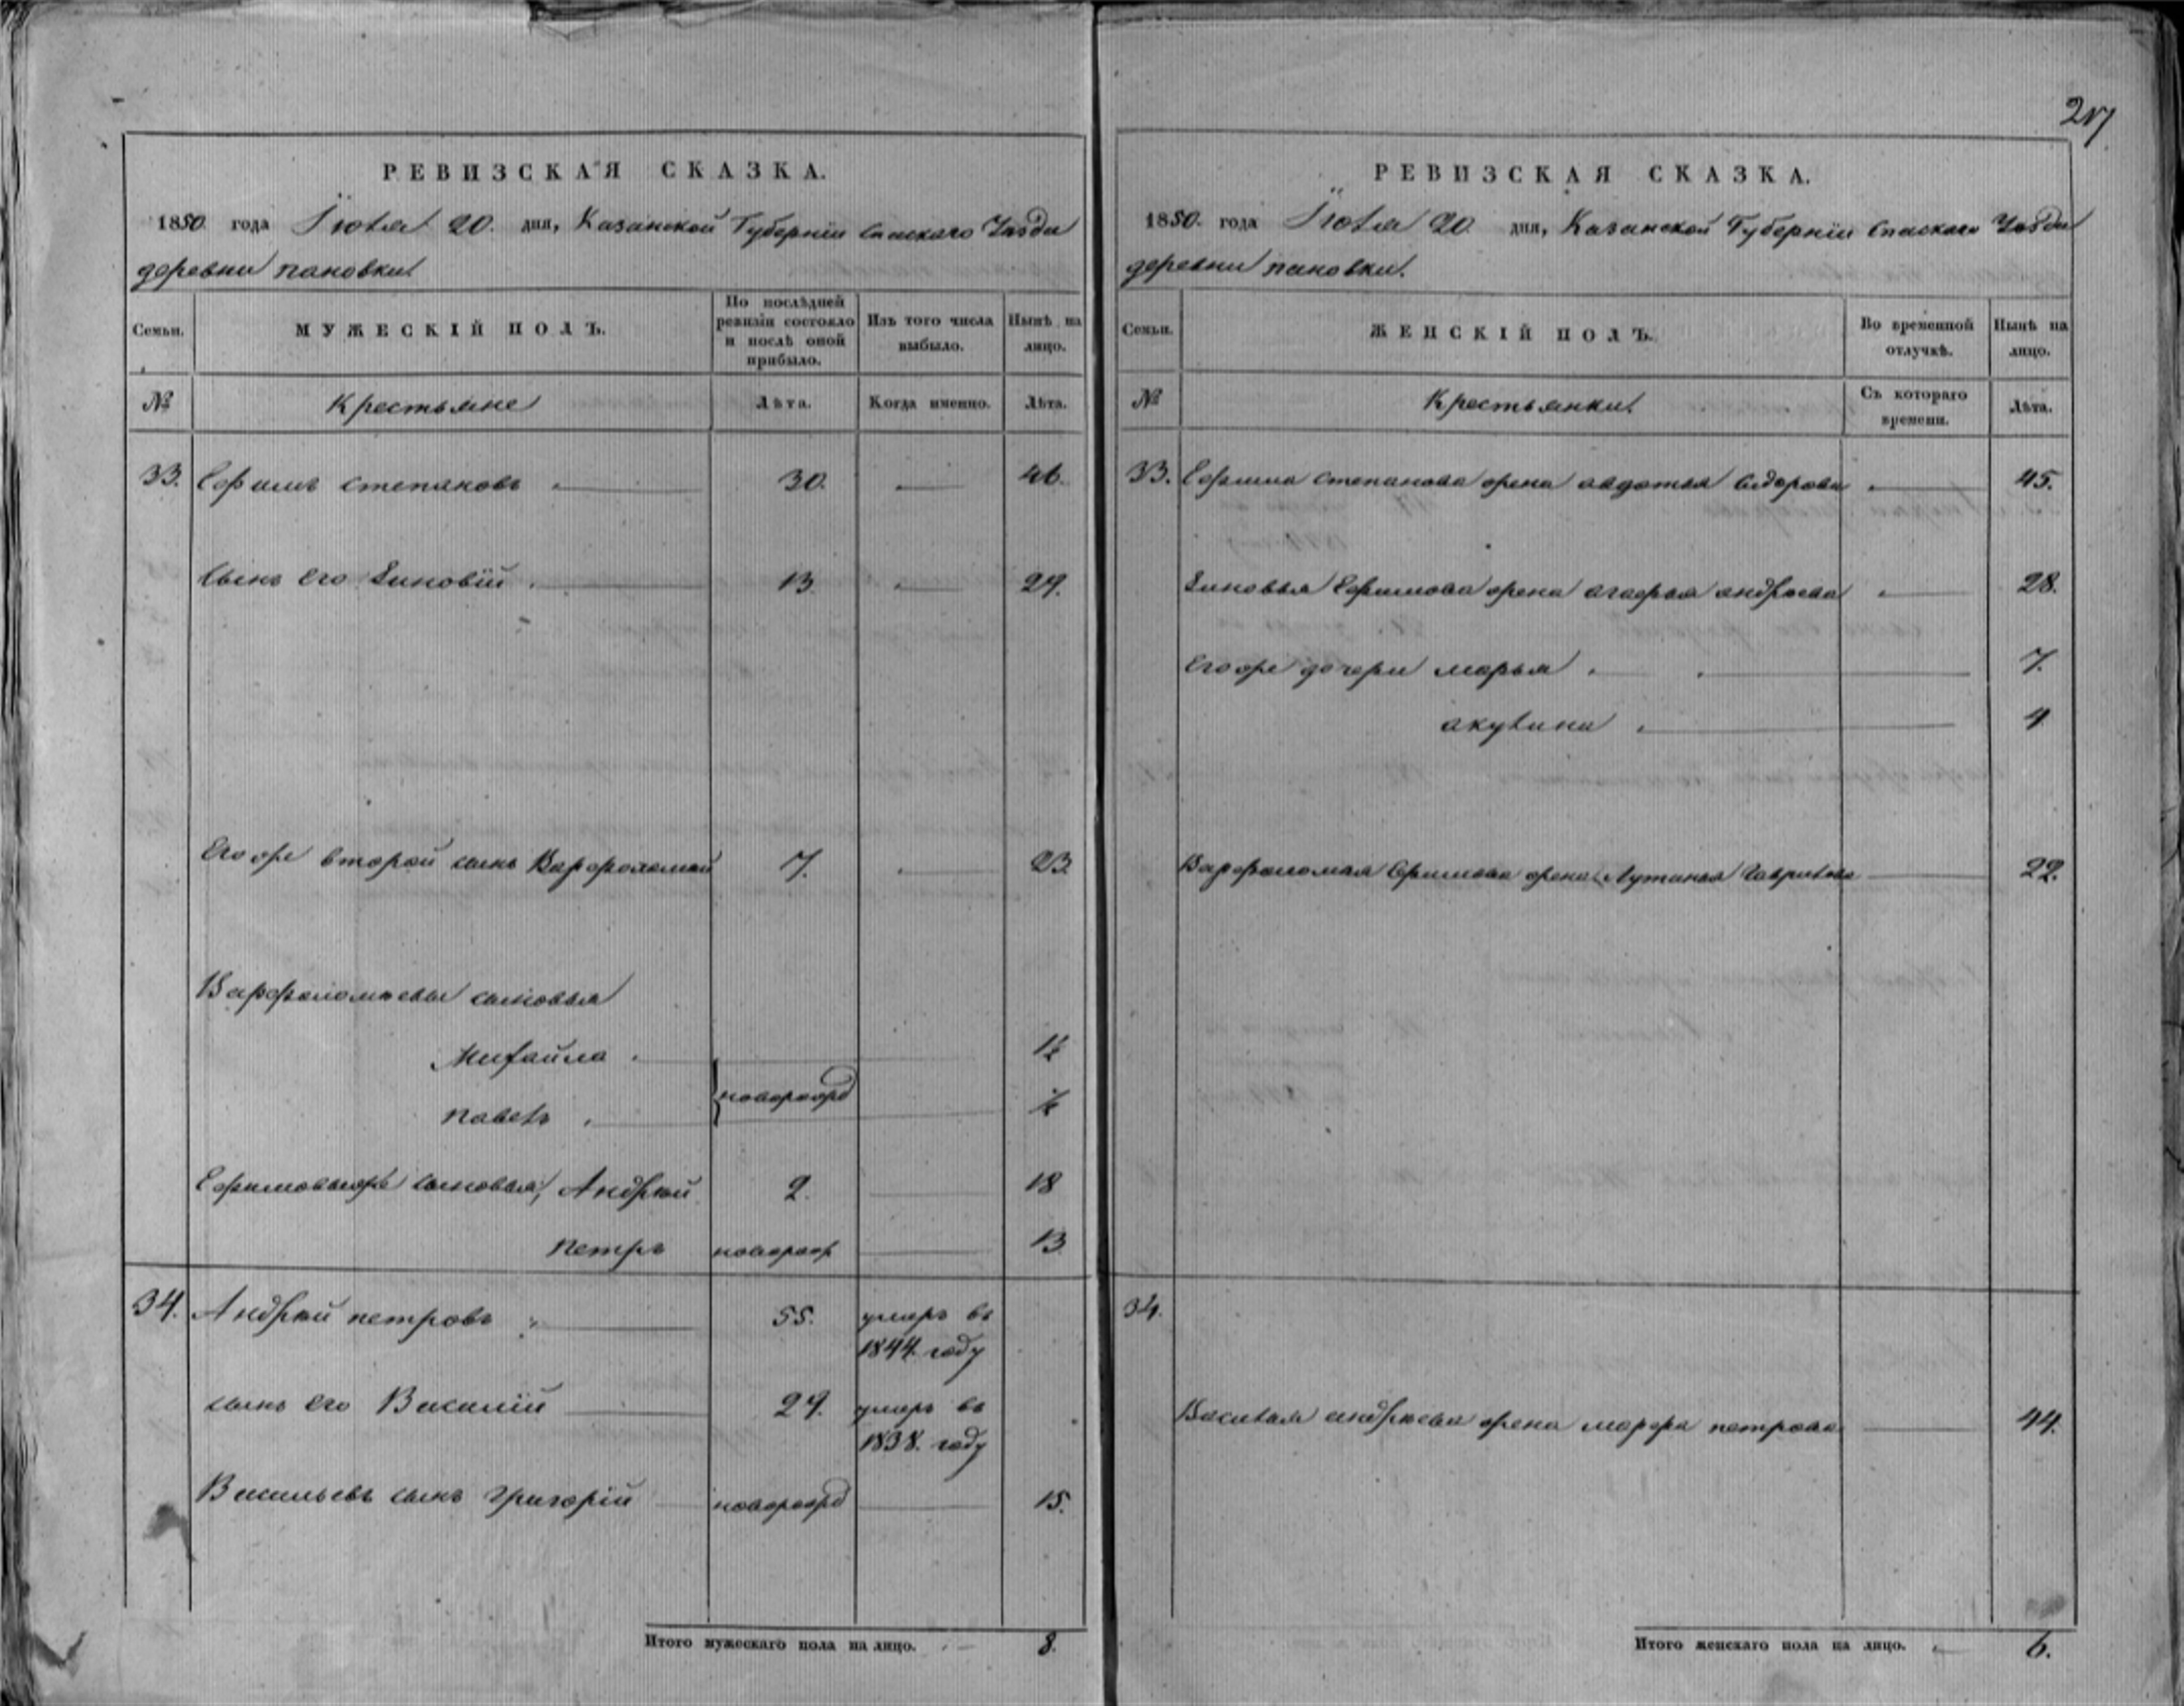 217
РЕВИЗСКАЯ СКАЗКА.
1850. года Іюля 20. дня, Казанской Губерніи Спаскаго Уѣзда
деревни пановки
Семьи.
МУЖЕСКІЙ ПОЛЪ.
По послѣдней ревизіи состояло и послѣ оной прибыло.
Изъ того числа выбыло.
Нынѣ на лицо.
№
Крестьяне
Лѣта.
Когда именно.
Лѣта.
33. Ефимъ степановъ 30. 46.
Сынъ его Зиновій 13. 29.
Егоже второй сынъ Варфоломей 7. 23
Варфоломѣевы сыновья
Михайла 1½
новорожд
павелъ ½
Ефимовыже сыновья, Андрѣй 2. 18
петръ новорож 13
34. Андрѣй петровъ 55. умеръ въ
1844. году
сынъ его Василій 29. умеръ въ
1838. году
Васильевъ сынъ григорій новорожд 15.
Итого мужескаго пола на лицо. 8.
РЕВИЗСКАЯ СКАЗКА.
1850. года Іюля 20 дня, Казанской Губерніи Спаскаго Уѣзда
деревни пановки.
Семьи.
ЖЕНСКІЙ ПОЛЪ.
Во временной отлучкѣ.
Нынѣ на лицо.
№
Крестьянки
Съ котораго времени.
Лѣта.
33. Ефима степанова жена авдотья Сидорова 45.
Зиновья Ефимова жена агафья андрѣева 28.
Егоже дочери марья 7.
акулина 4
Варфоломея Ефимова жена Лутанья Гаврилова 22.
34.
Василья андрѣева жена марфа петрова 44.
Итого женскаго пола на лицо. 6.